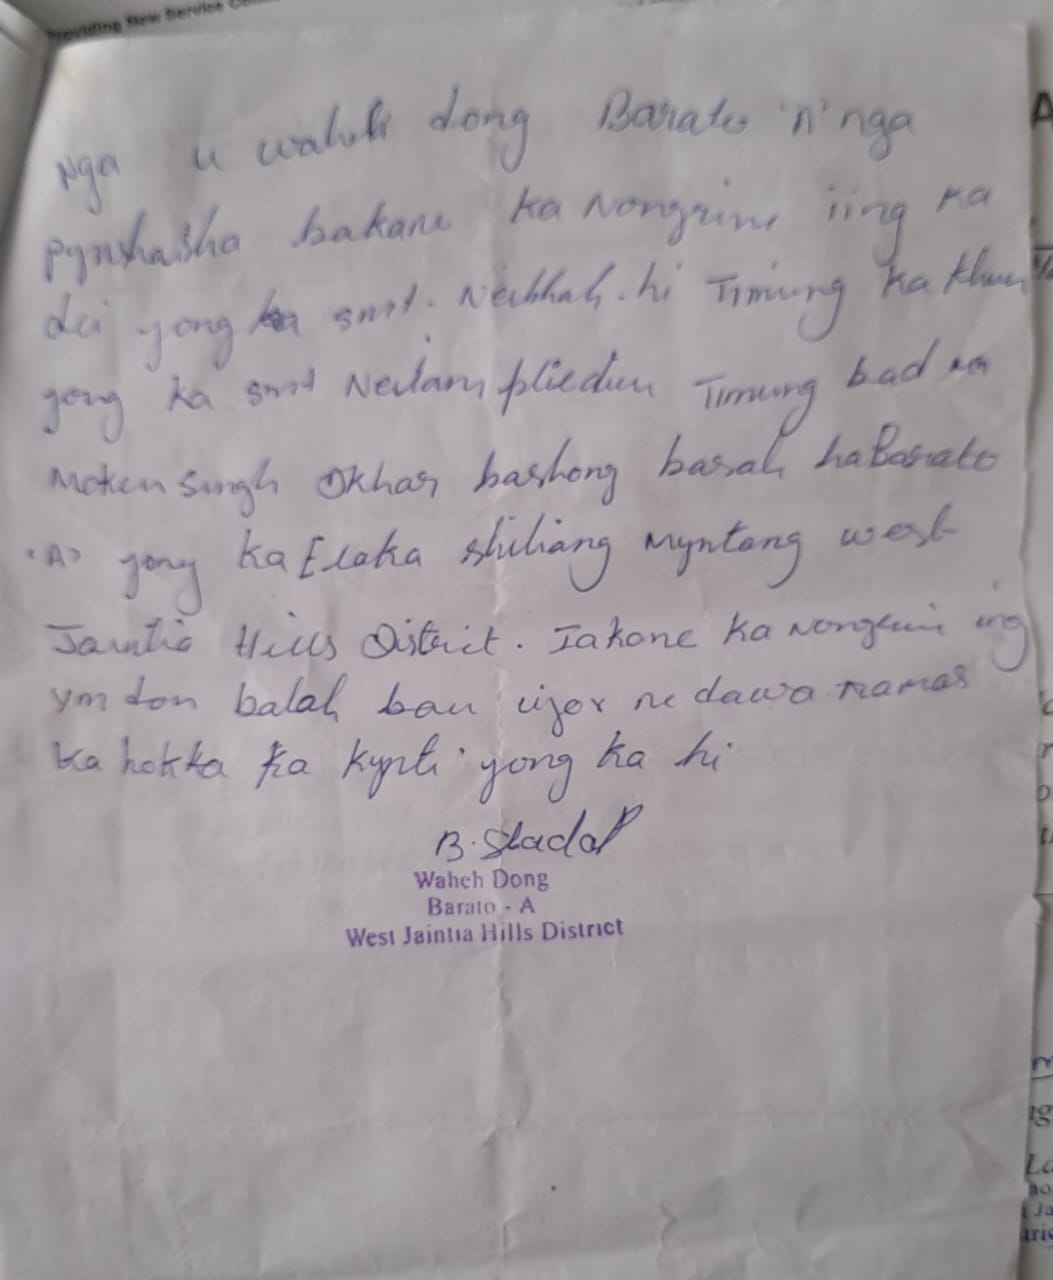 Providing New Service
Nga u waheh dong Barato 'n' nga
pynshaisha bakane ka Nongrim iing ka
dei yong ka smt. Neibhah. hi Timung ka khun
yong ka smt Neilam pliedim Timung bad
Moken Singh Okhar bashong basah ha Barato
'A' yong ka Elaka shiliang Myntang west
Jaintia Hills District. Iakane ka nongrim ing
ym don balah ban ne dawa namar
ka hokka ka kynti yong ka hi
B. Sladol
Waheh Dong
Barato - A
West Jaintia Hills District